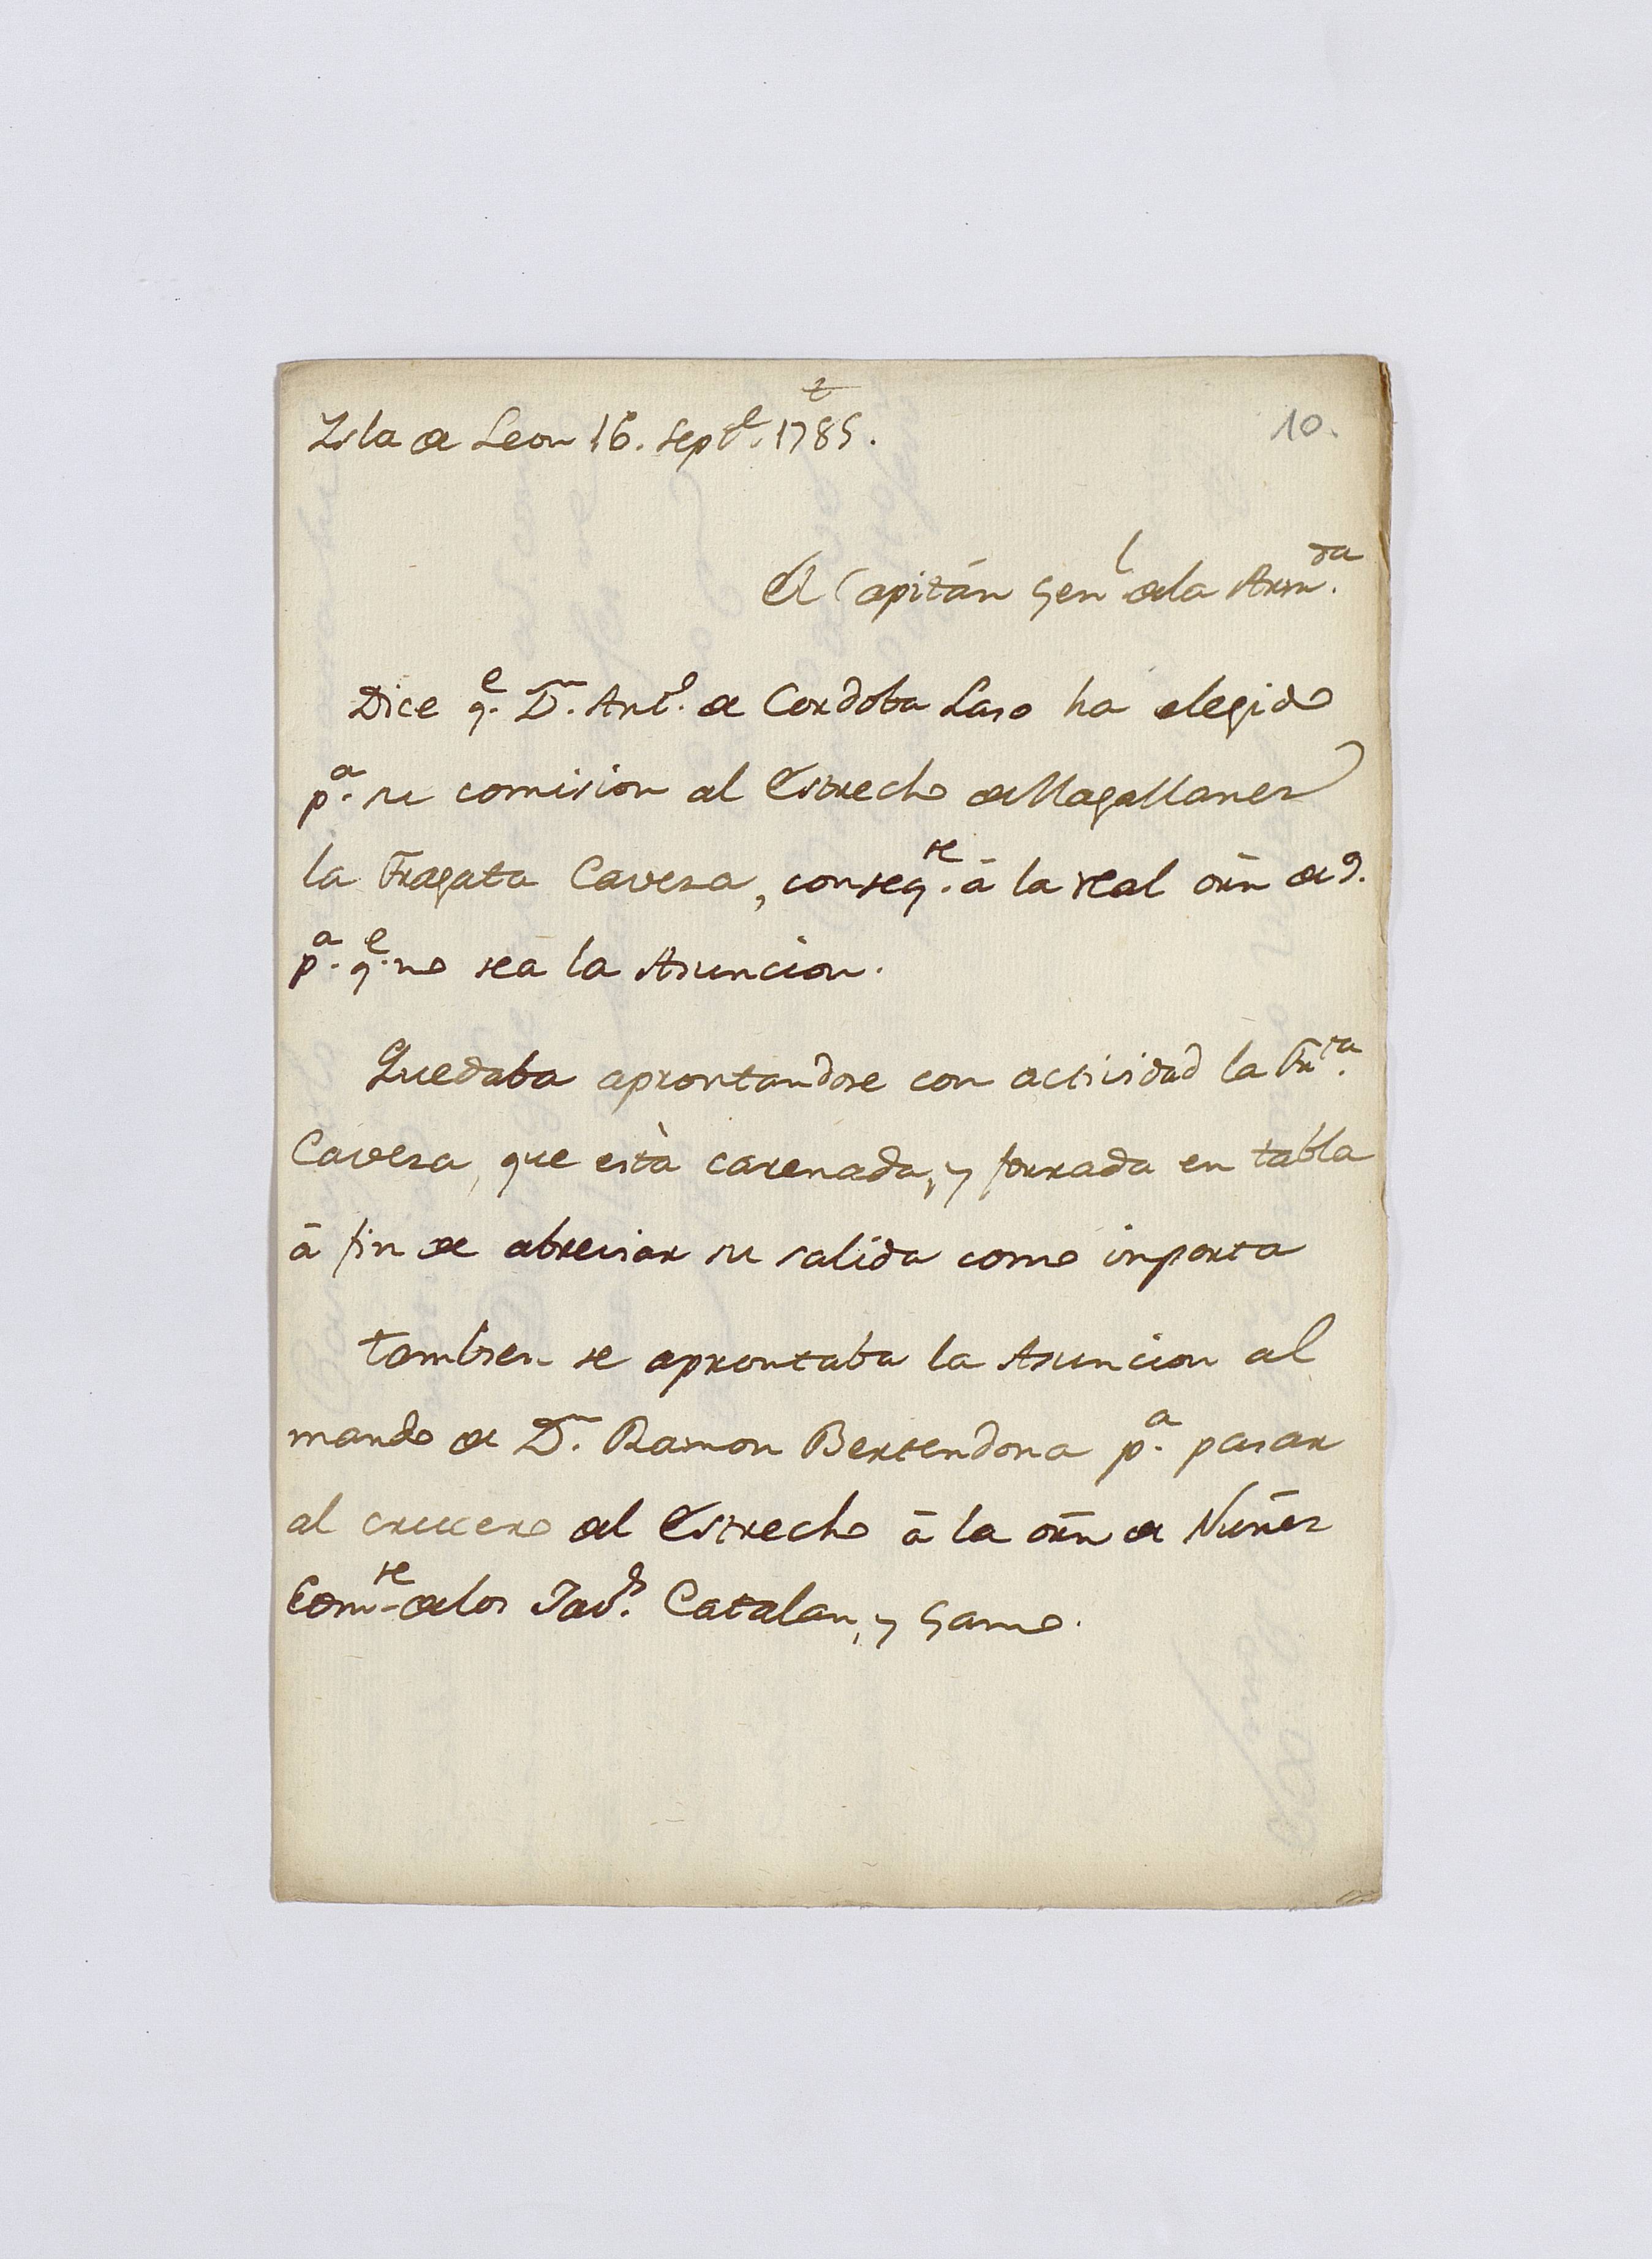 Isla de Leon 16. Sepre. 1785.
10.
El Capitán Genl. dela Armda.
Dice qe. Dn. Anto. de Cordoba Laso ha elegido
pa. su comision al Estrecho de Magallanes
la Fragata Caveza, conseqte. á la real orn de 9.
pa. qe. no sea la Asuncion.
Quedaba aprontandose con actividad la Frta.
Caveza, que está carenada, y forrada en tabla
á fin de abreviar su salida como importa
tambien se aprontaba la Asuncion al
mando de Dn. Ramon Bertendona pa. pasar
al crucero del Estrecho á la orn de Nuñez
Comte. delos Catalan, y Gamo.